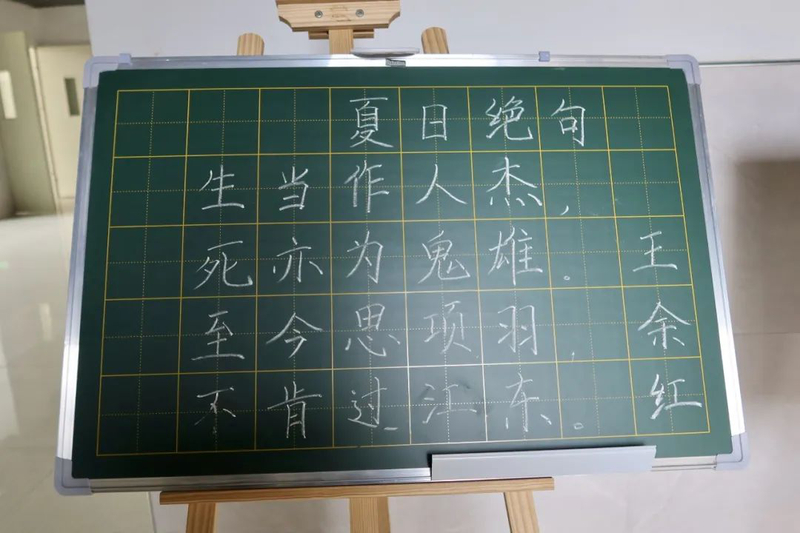 夏日绝句
生当作人杰，
死亦为鬼雄。
至今思项羽，
不肯过江东。
王余红